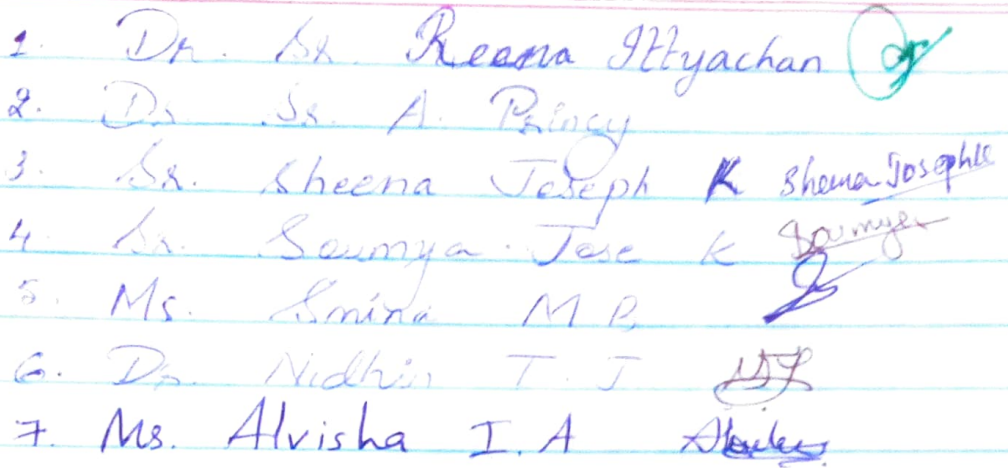 1. Dr. Sr. Reena Ittyachan
2. Dr Sr. A. Princy
3. Sr. Sheena Joseph K Sheena Joseph K
4. Sr. Soumya Jose K Soumya
5. Ms. Smina M P.
6. Dr. Nidhin T. J
7. Ms. Alvisha I. A